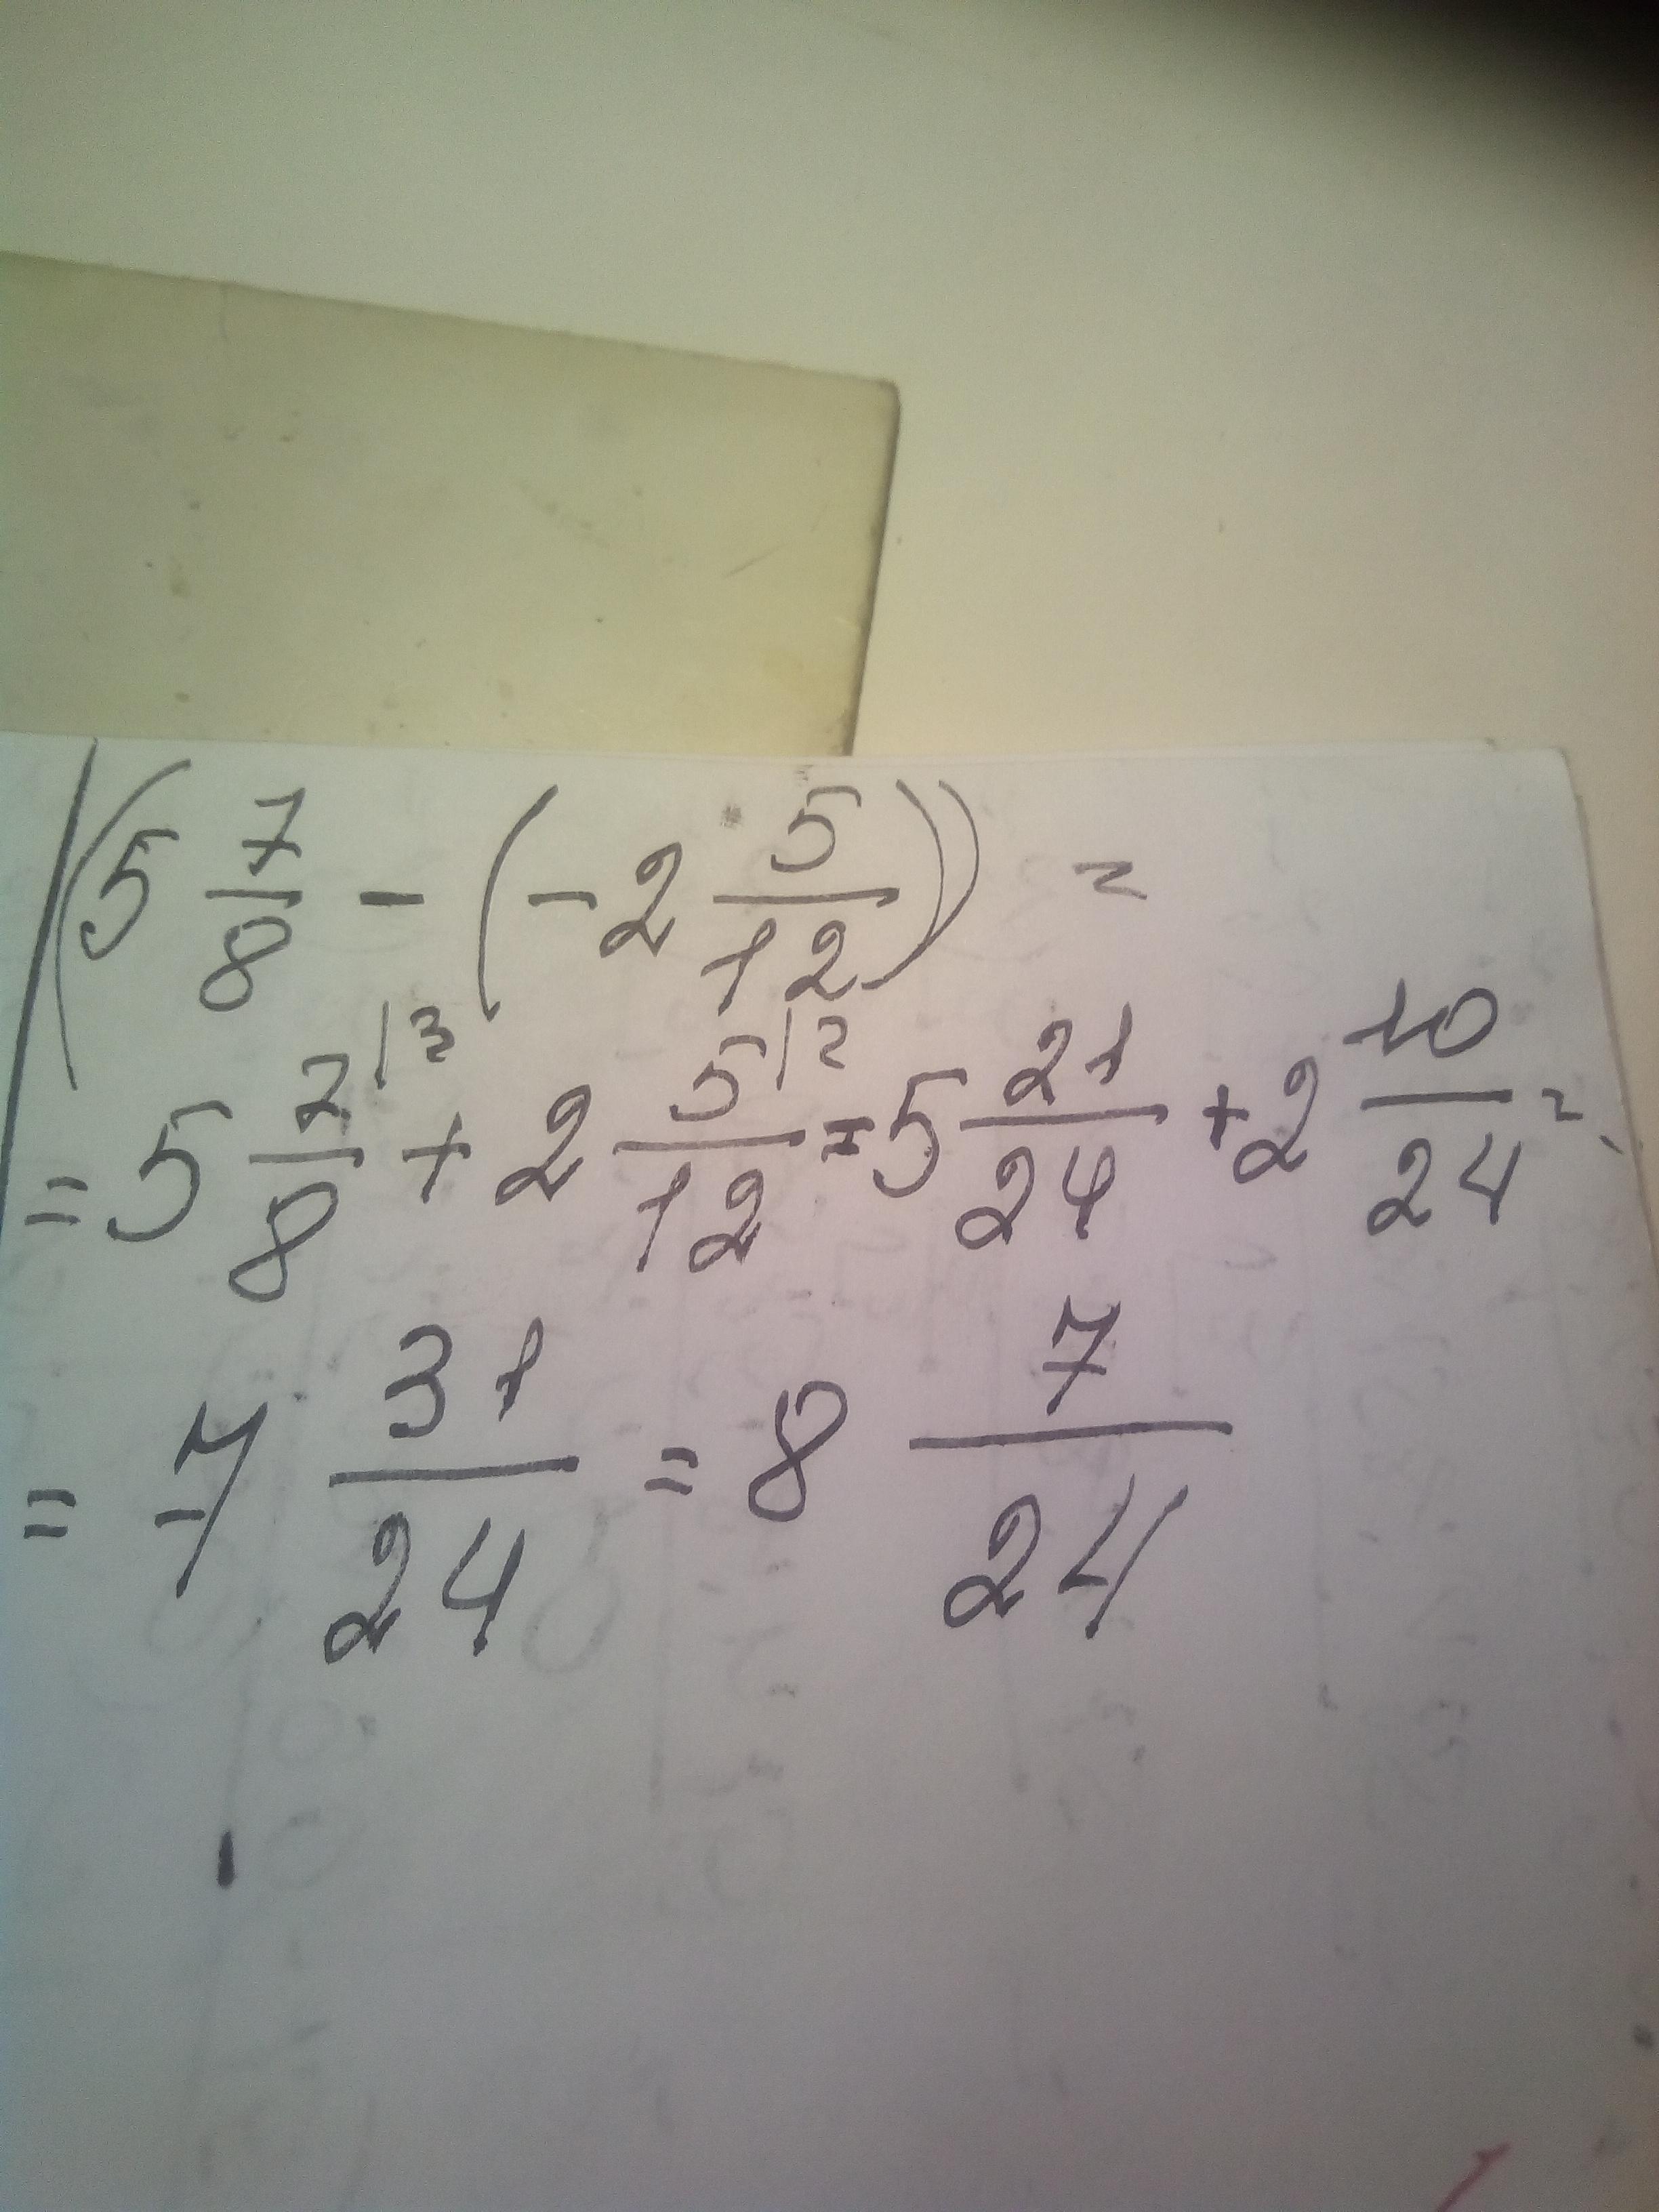 (5 7/8 - (-2 5/12)) =
= 5 7/8 |3 + 2 5/12 |2 = 5 21/24 + 2 10/24 =
= 7 31/24 = 8 7/24